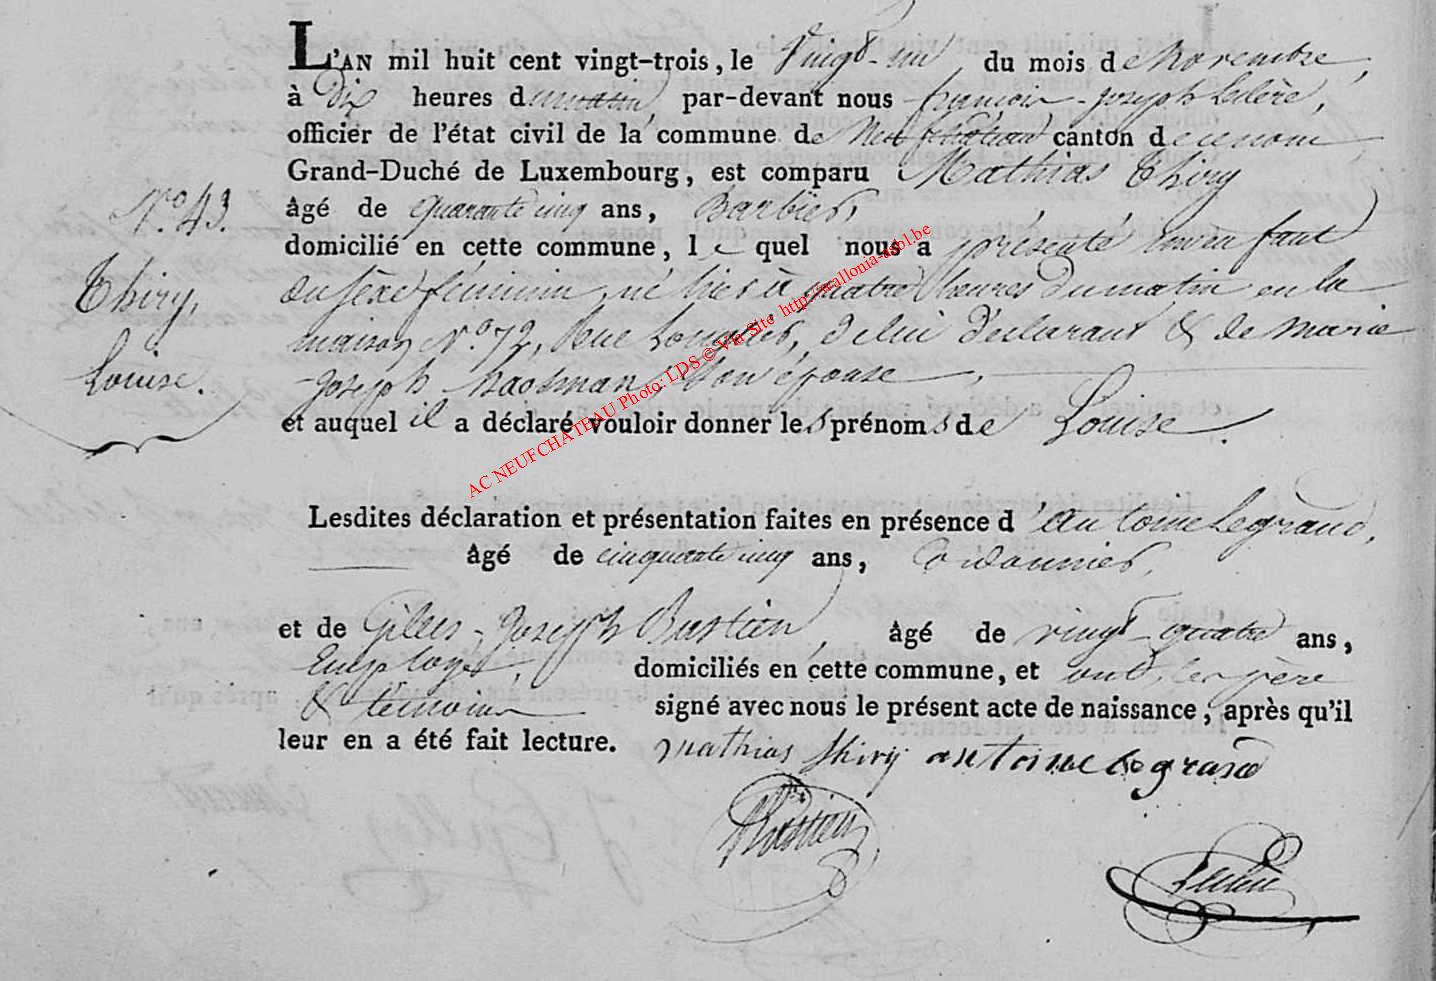 L'AN mil huit cent vingt-trois, le Vingt-un du mois de Novembre,
à Dix heures du matin par-devant nous françois-joseph Leclère,
officier de l'état civil de la commune de Neufchateau canton de ce nom,
Grand-Duché de Luxembourg, est comparu Mathias Thiry
N.o 43.
âgé de quarante cinq ans, Barbier,
domicilié en cette commune, le quel nous a présenté un enfant
Thiry,
du sèxe féminin, né hier à quatre heures du matin en la
maison N.o 72, Rue , de lui déclarant & de marie
Louise.
joseph , son épouse,
et auquel il a déclaré vouloir donner les prénoms de Louise.
AC NEUFCHATEAU Photo: LDS © Via Site http://wallonia-asbl.be
Lesdites déclaration et présentation faites en présence d'antoine Legrand,
âgé de cinquante cinq ans, Cordonnier,
et de Gilles-Joseph Bastien, âgé de vingt-quatre ans,
Employé, domiciliés en cette commune, et ont, les père
& témoins signé avec nous le présent acte de naissance, après qu'il
leur en a été fait lecture. Mathias thiry antoine legrand
Bastien
Leclère